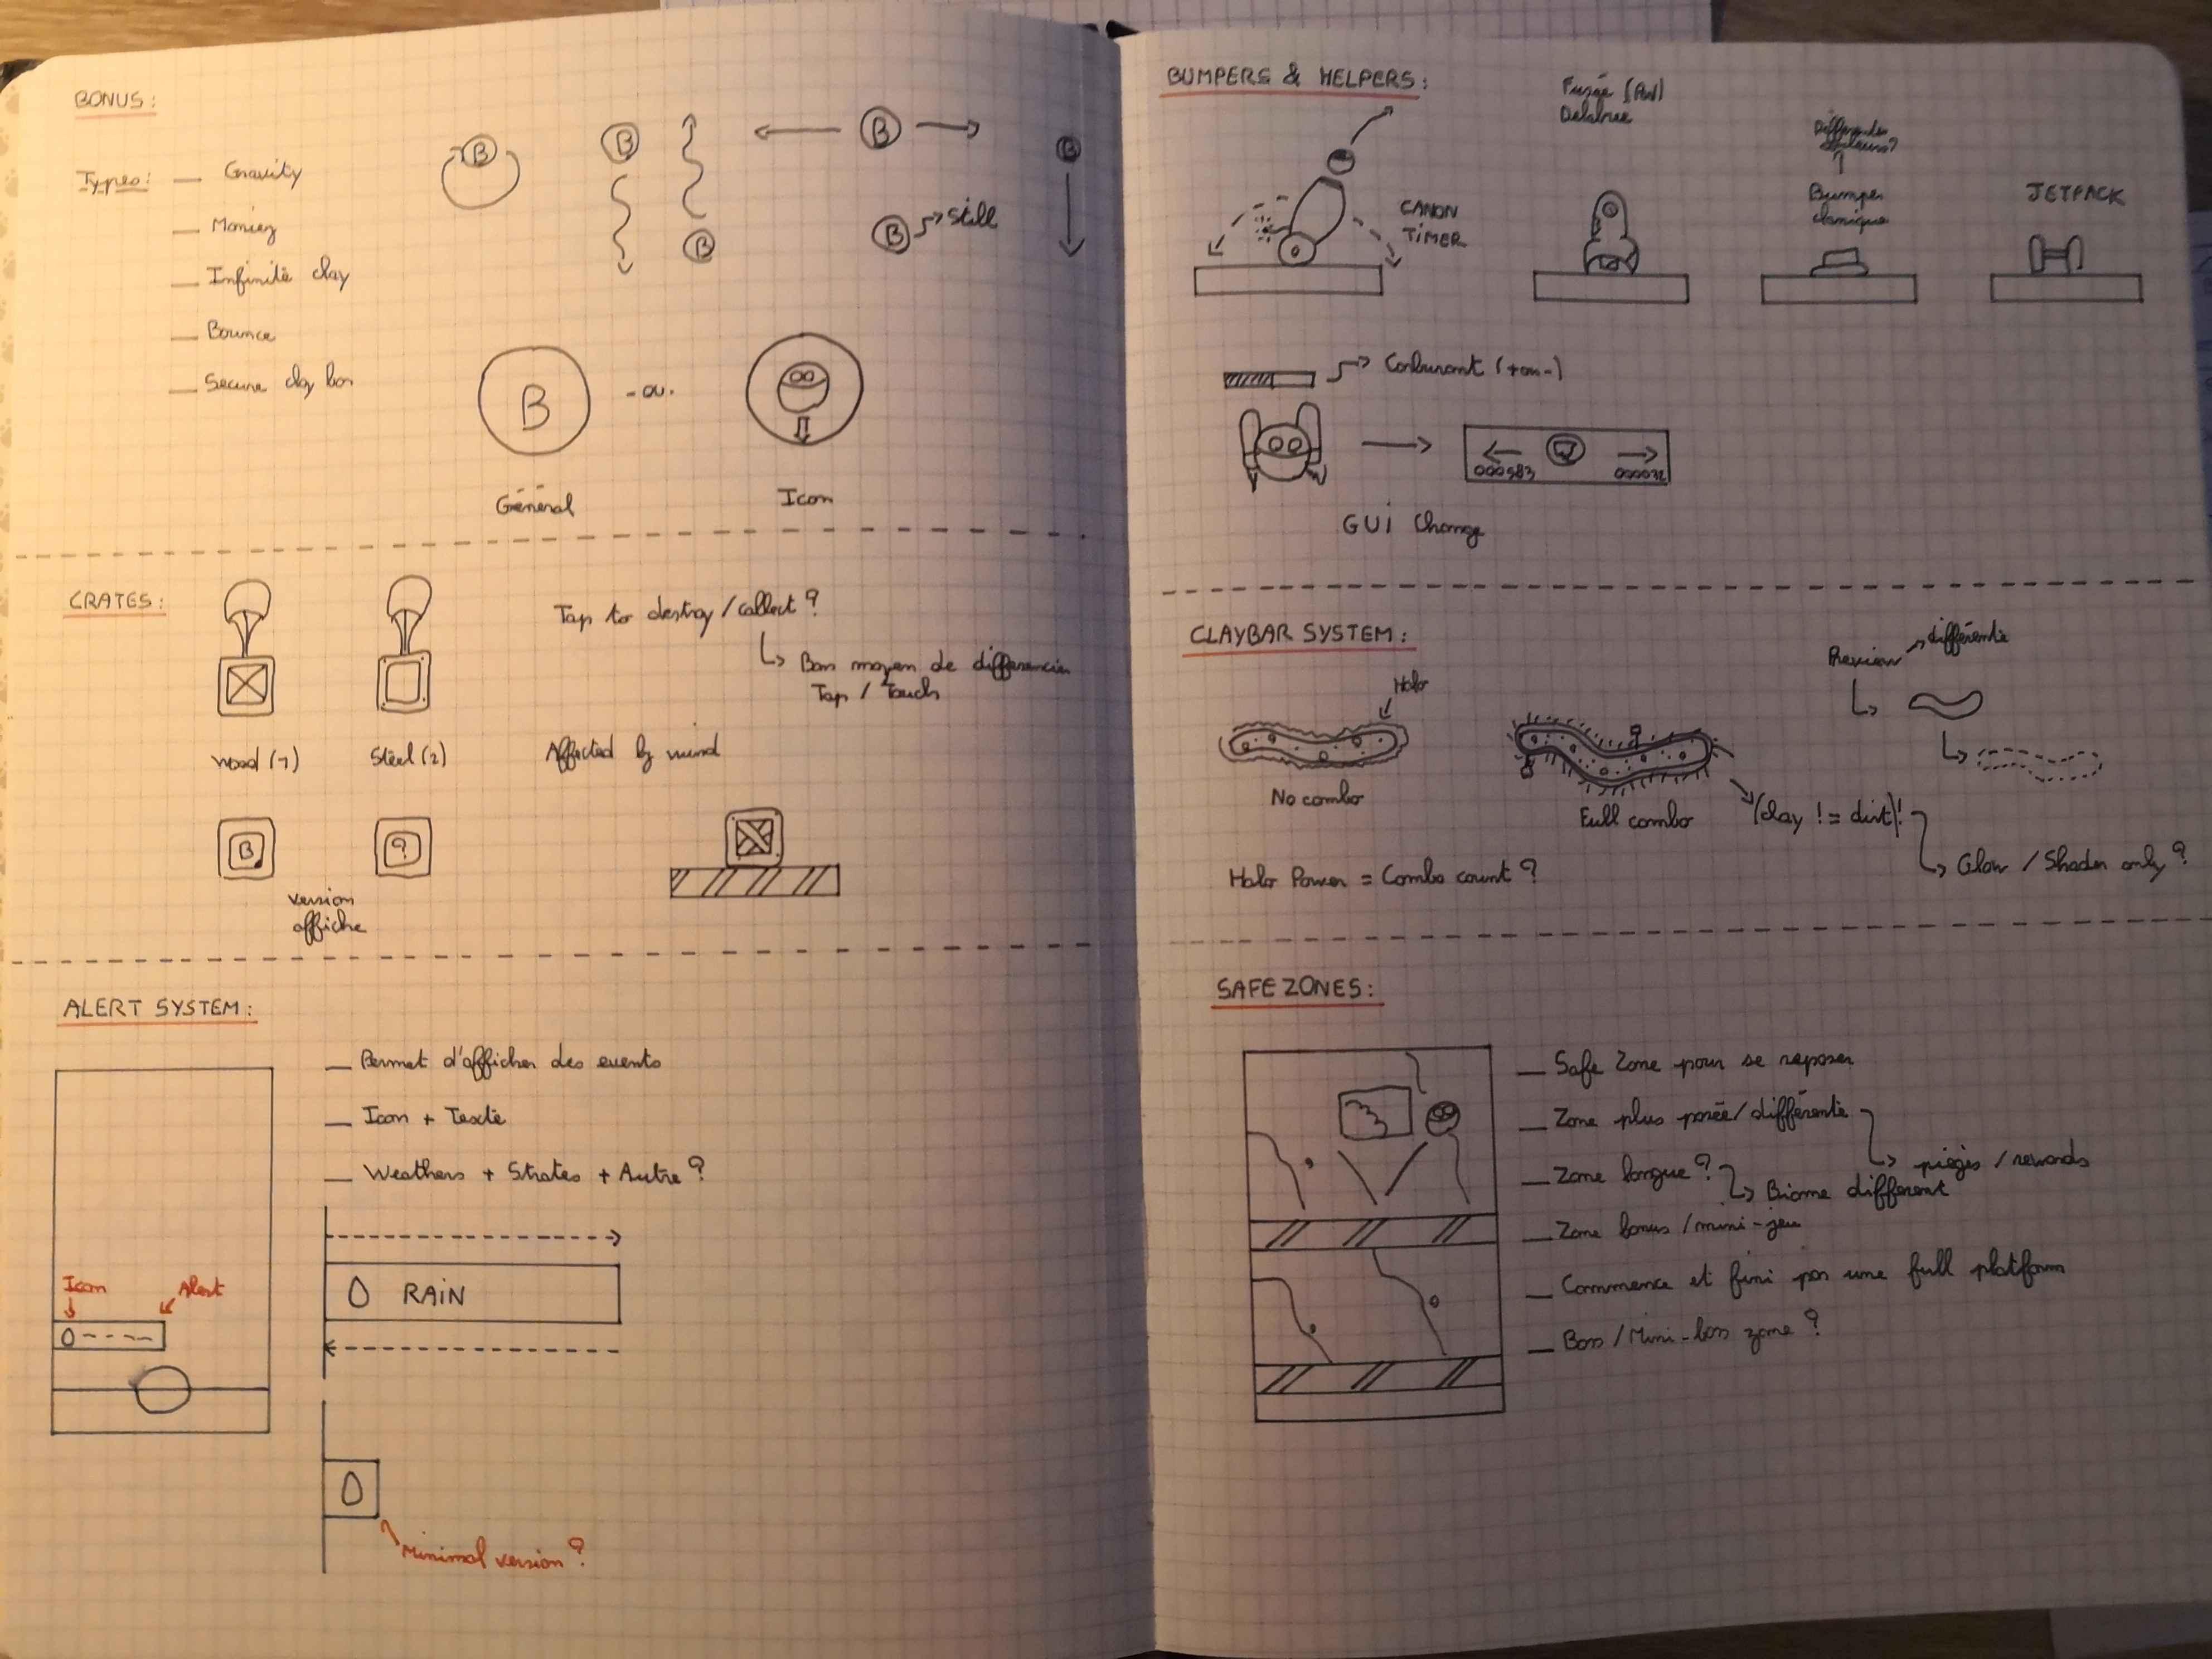 BONUS :
Types : — Gravity
— Moniez
— Infinite clay
— Bounce
— Secure clay bar
B
B
B
B
B
B → Still
B
- ou -
Général
Icon
CRATES :
Wood (1)
Steel (2)
Tap to destroy / collect ?
↳ Bon moyen de differencier
Tap / Touch
Affected by wind
B
?
Version
affiche
ALERT SYSTEM :
— Permet d'afficher des events
— Icon + Texte
— Weathers + Strates + Autre ?
Icon
Alert
0 - - - -
RAIN
Minimal version ?
BUMPERS & HELPERS :
CANON
TIMER
Fusée
Délabrée
Différentes
Bumper
classique
JETPACK
Carburant (+ ou -)
000583
000032
GUI Change
CLAYBAR SYSTEM :
Halo
No combo
Full combo
Preview → différente
(clay != dirt) !
↳ Glow / Shader only ?
Halo Power = Combo count ?
SAFE ZONES :
— Safe Zone pour se reposer
— Zone plus posée / différente
↳ pièges / rewards
— Zone longue ?
↳ Biome different
— Zone bonus / mini-jeu
— Commence et fini par une full platform
— Boss / Mini-boss zone ?